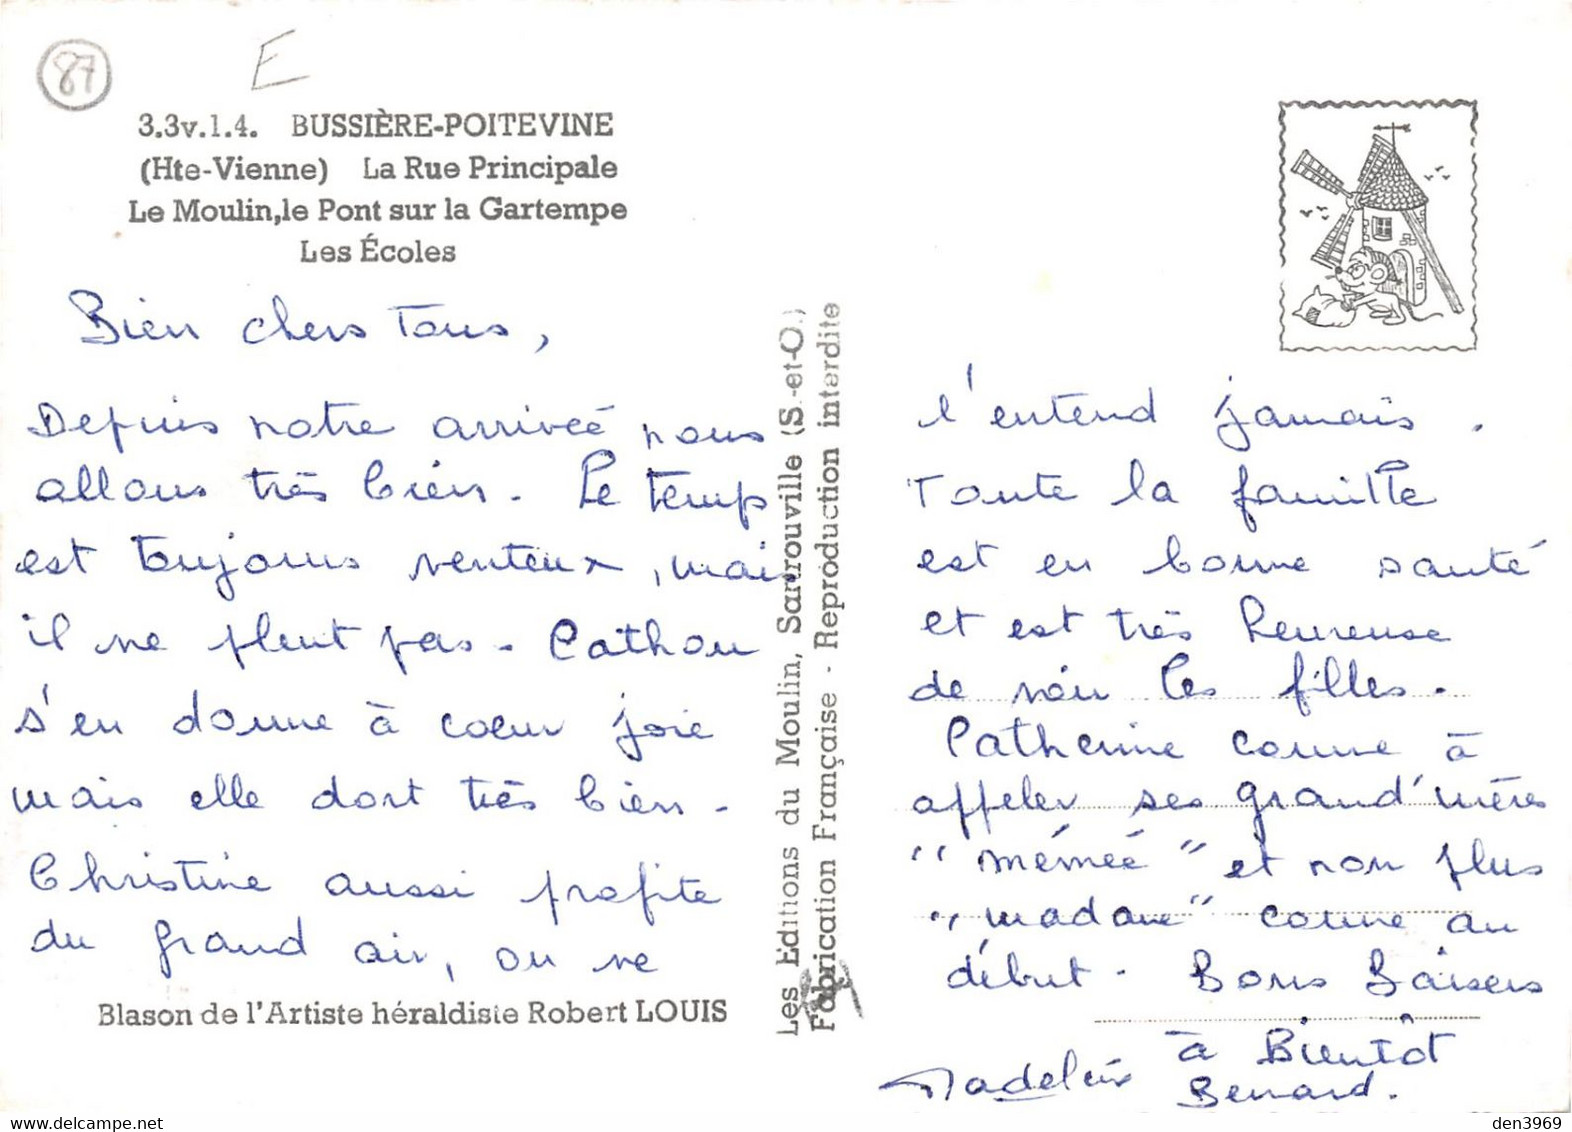 87
E
3.3v.1.4. BUSSIÈRE-POITEVINE
(Hte-Vienne) La Rue Principale
Le Moulin, le Pont sur la Gartempe
Les Écoles
Bien chers Tous,
Depuis notre arrivée nous
allons très bien. Le temps
est toujours venteux, mais
il ne pleut pas. Cathou
s'en donne à coeur joie
mais elle dort très bien.
Christine aussi profite
du grand air, on ne
Blason de l'Artiste héraldiste Robert LOUIS
Les Editions du Moulin, Sartrouville (S.-et-O.)
Fabrication Française - Reproduction interdite
l'entend jamais.
Toute la famille
est en bonne santé
et est très heureuse
de voir les filles.
Catherine comme à
appeler ses grand'mères
"mémée" et non plus
"madame" comme au
début. Bons Baisers
à Bientôt
Madeleine Bernard.
den3969